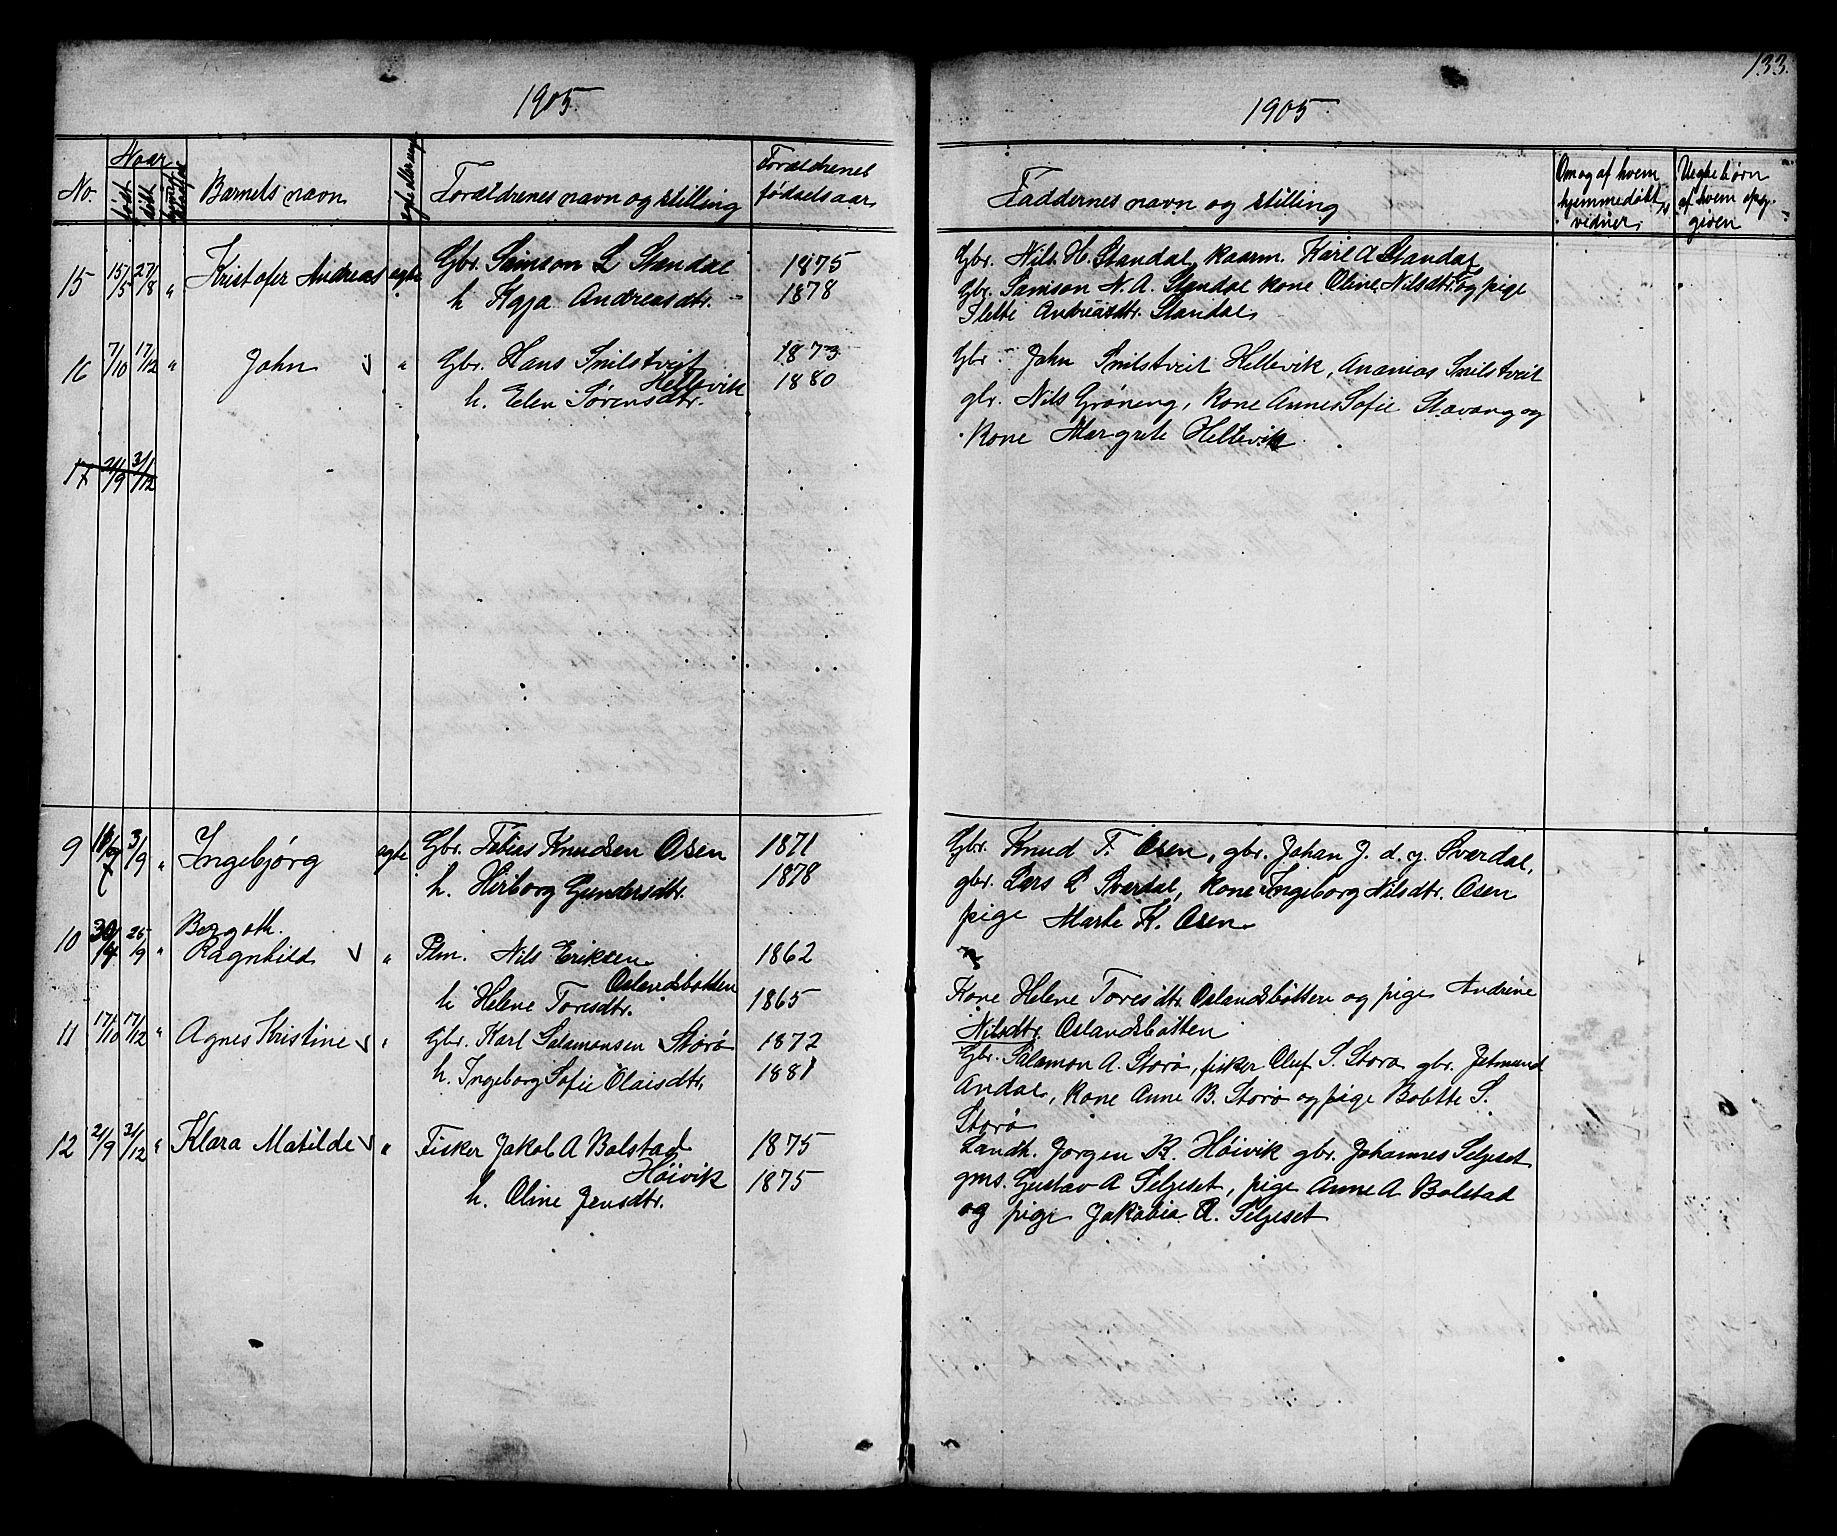 133.
1905
1905
No. Naar Barnets navn egte eller uegte Forældrenes navn og stilling Forældrenes fødselsaar
født døbt
Faddernes navn og stilling Om og af hvem hjemmedøbt, vidner Uegte børn af hvem opgiven
15 15/5 27/8 " Kristofer Andreas egte Gbr. Samson L Standal 1875
h. Kaja Andreasdtr. 1878
Gbr. Nils H. Standal, kaarm. Karl A Standal,
Gbr. Samson N. A. Standal kone Oline Nilsdtr. og pige
Andreasdtr. Standal
16 7/10 17/12 " John " Gbr. Hans Smilstveit 1873
Hellevik
h. Elen Sørensdtr. 1880
Gbr John Smilstveit Hellevik, Ananias Smilstveit
gbr. Nils Grøneng, Kone Anne Sofie Stavang og
Kone Margrete Hellevik
17 2/9 3/12
9 3/9 " Ingebjørg egte Gbr. Tobias Knudsen Osen 1871
h. Herborg Gundersdtr. 1878
Gbr. Knud T. Osen, gbr. Johan J. d. y. Sværdal,
gbr. Lars L Sværdal, Kone Ingeborg Nilsdtr. Osen
pige Marte K. Osen
10 25/9 " Bergoth.
Ragnhild " Plm. Nils Eriksen 1862
Oslandsbotten
h Helene Toresdtr. 1865
Kone Helene Toresdtr. Oslandsbotten og pige Andrine
Nilsdtr. Oslandsbotten
11 17/10 17/12 " Agnes Kristine " Gbr. Karl Salamonsen Storø 1872
h. Ingeborg Sofie Olaisdtr. 1881
Gbr. Salamon A. Storø, fisker Oluf S. Storø gbr. Jetmund
Andal, Kone Anne B. Storø og pige Bolette S.
Storø
12 2/9 3/12 " Klara Matilde " Fisker Jakob A Bolstad 1875
Høivik
h. Oline Jensdtr. 1875
Landh. Jørgen R. Høivik gbr. Johannes Seljeset
gms. Gustav A Seljeset, pige Anne A Bolstad
og pige Jakobia A. Seljeset